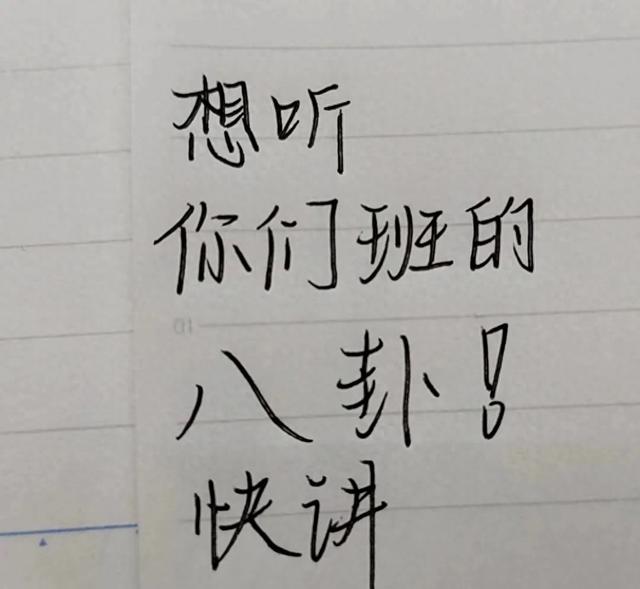 想听
你们班的
01
八卦！
快讲